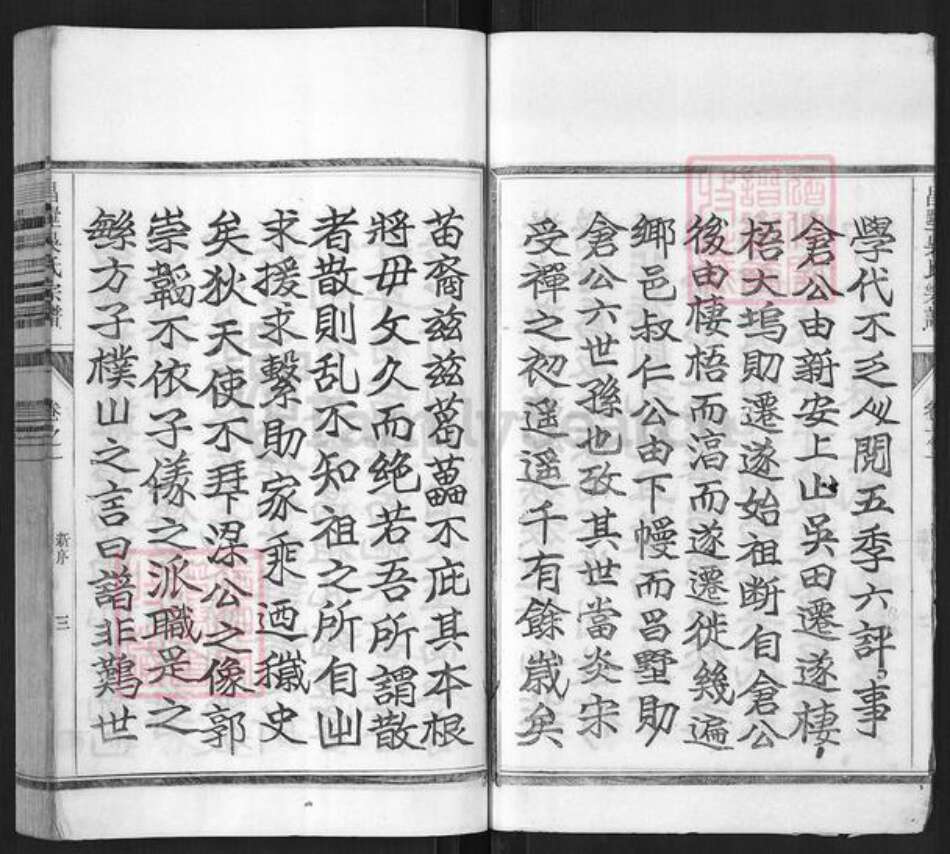 學代不乏人閱五季六評事
僋公由新安上山吳田遷遂棲
梧大塢則遷遂始祖断自僋公
後由棲梧而湻而遂遷徙幾遍
鄉邑叔仁公由下幔而昌墅則
僋公六世孫也攷其世當炎宋
受禪之初遥遥千有餘嵗矣
苗裔兹兹葛藟不庇其本根
將毋攵久而绝若吾所謂散
者散則乱不知祖之所自出
求援求繫助家乘迺穢史
矣狄天使不拜梁公之像郭
崇韜不依子儀之派職是之
鯀方子樸山之言曰譜非鷬世
昌墅吳氏宗譜
卷之一
新序
三